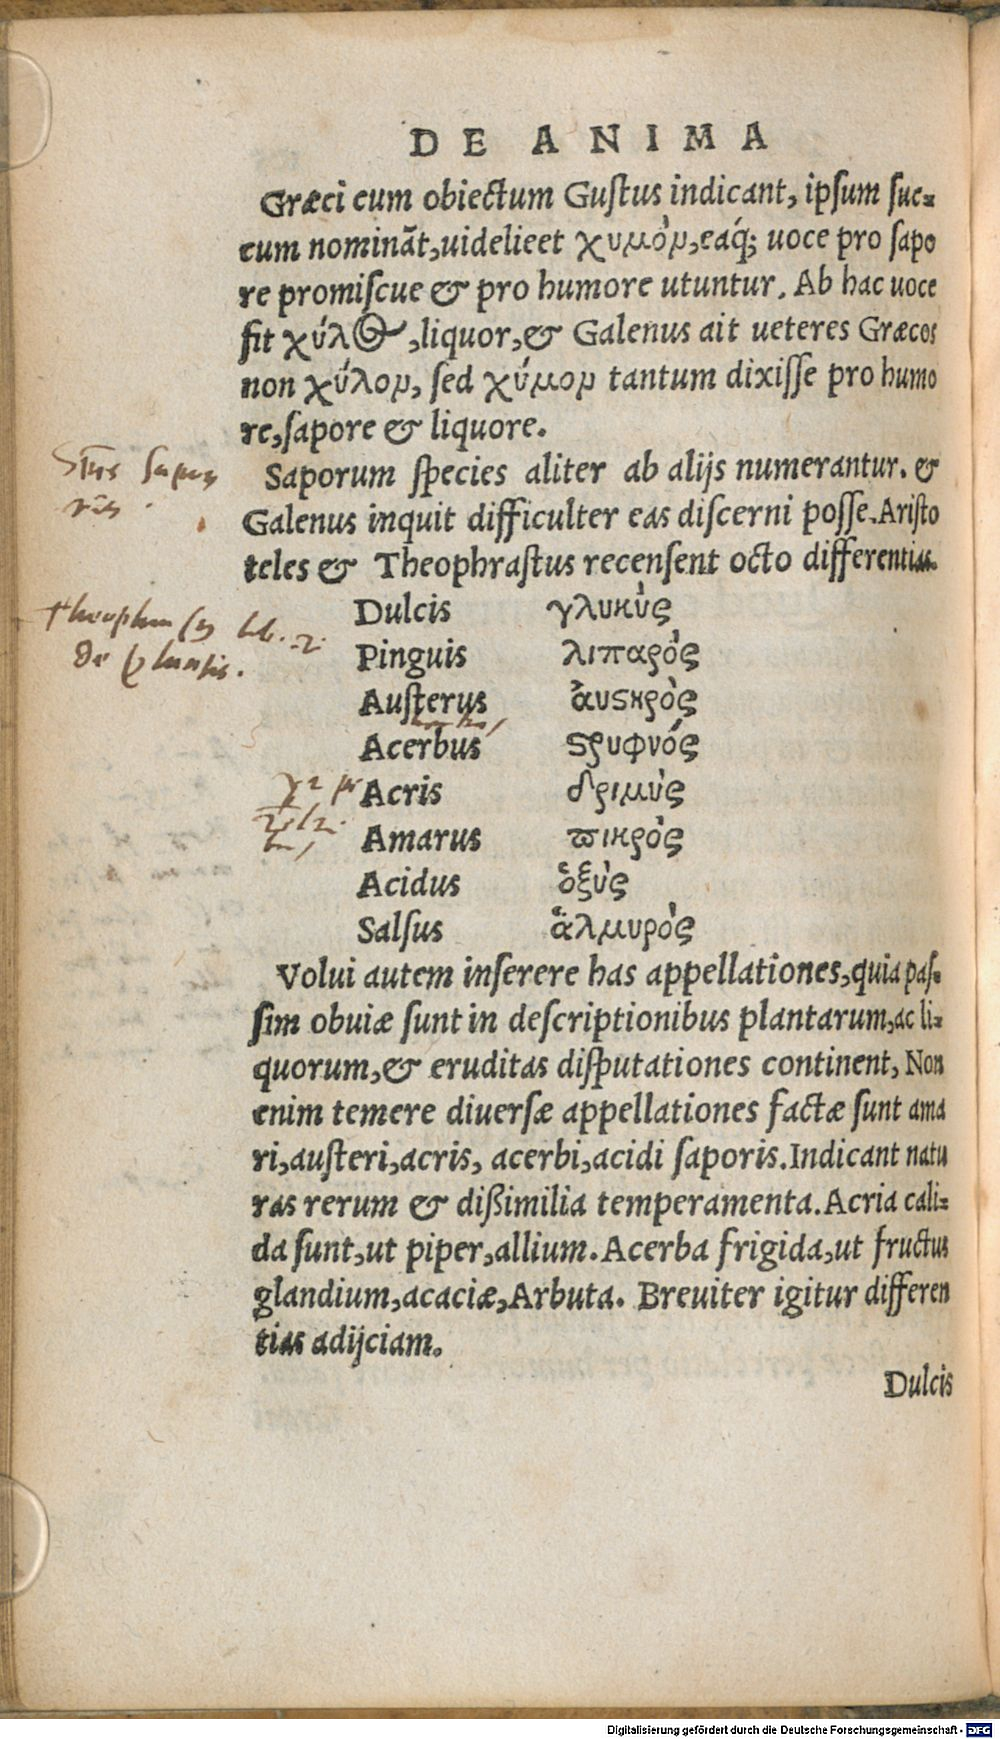 DE ANIMA
Græci cum obiectum Gustus indicant, ipsum suc-
cum nominãt, uidelicet χυμόν, eaq́; uoce pro sapo
re promiscue & pro humore utuntur. Ab hac uoce
fit χύλος, liquor, & Galenus ait ueteres Græcos
non χύλον, sed χύμον tantum dixisse pro humo
re, sapore & liquore.
Saporum species aliter ab alijs numerantur. &
Galenus inquit difficulter eas discerni posse. Aristo
teles & Theophrastus recensent octo differentias.
Dulcis γλυκὺς
Pinguis λιπαρὸς
Austerus ἀυστηρὸς
Acerbus στρυφνός
Acris δριμὺς
Amarus πικρὸς
Acidus ὀξὺς
Salsus ἁλμυρὸς
Volui autem inserere has appellationes, quia pas-
sim obuiæ sunt in descriptionibus plantarum, ac li-
quorum, & eruditas disputationes continent, Non
enim temere diuersæ appellationes factæ sunt ama
ri, austeri, acris, acerbi, acidi saporis. Indicant natu
ras rerum & dißimilia temperamenta. Acria cali-
da sunt, ut piper, allium. Acerba frigida, ut fructus
glandium, acaciæ, Arbuta. Breuiter igitur differen
tias adijciam.
Dulcis
lib. 2.
de
Digitalisierung gefördert durch die Deutsche Forschungsgemeinschaft - DFG